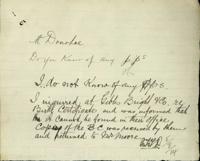 Mr Donohoe
Do you know of any pps
I do not know of any pps.
I inquired at Gibbs Bright & Co. re
Birth Certificate and was informed that
he cannot be found in their office
Copy of the B.C. was received by them
and returned to Mr Moore